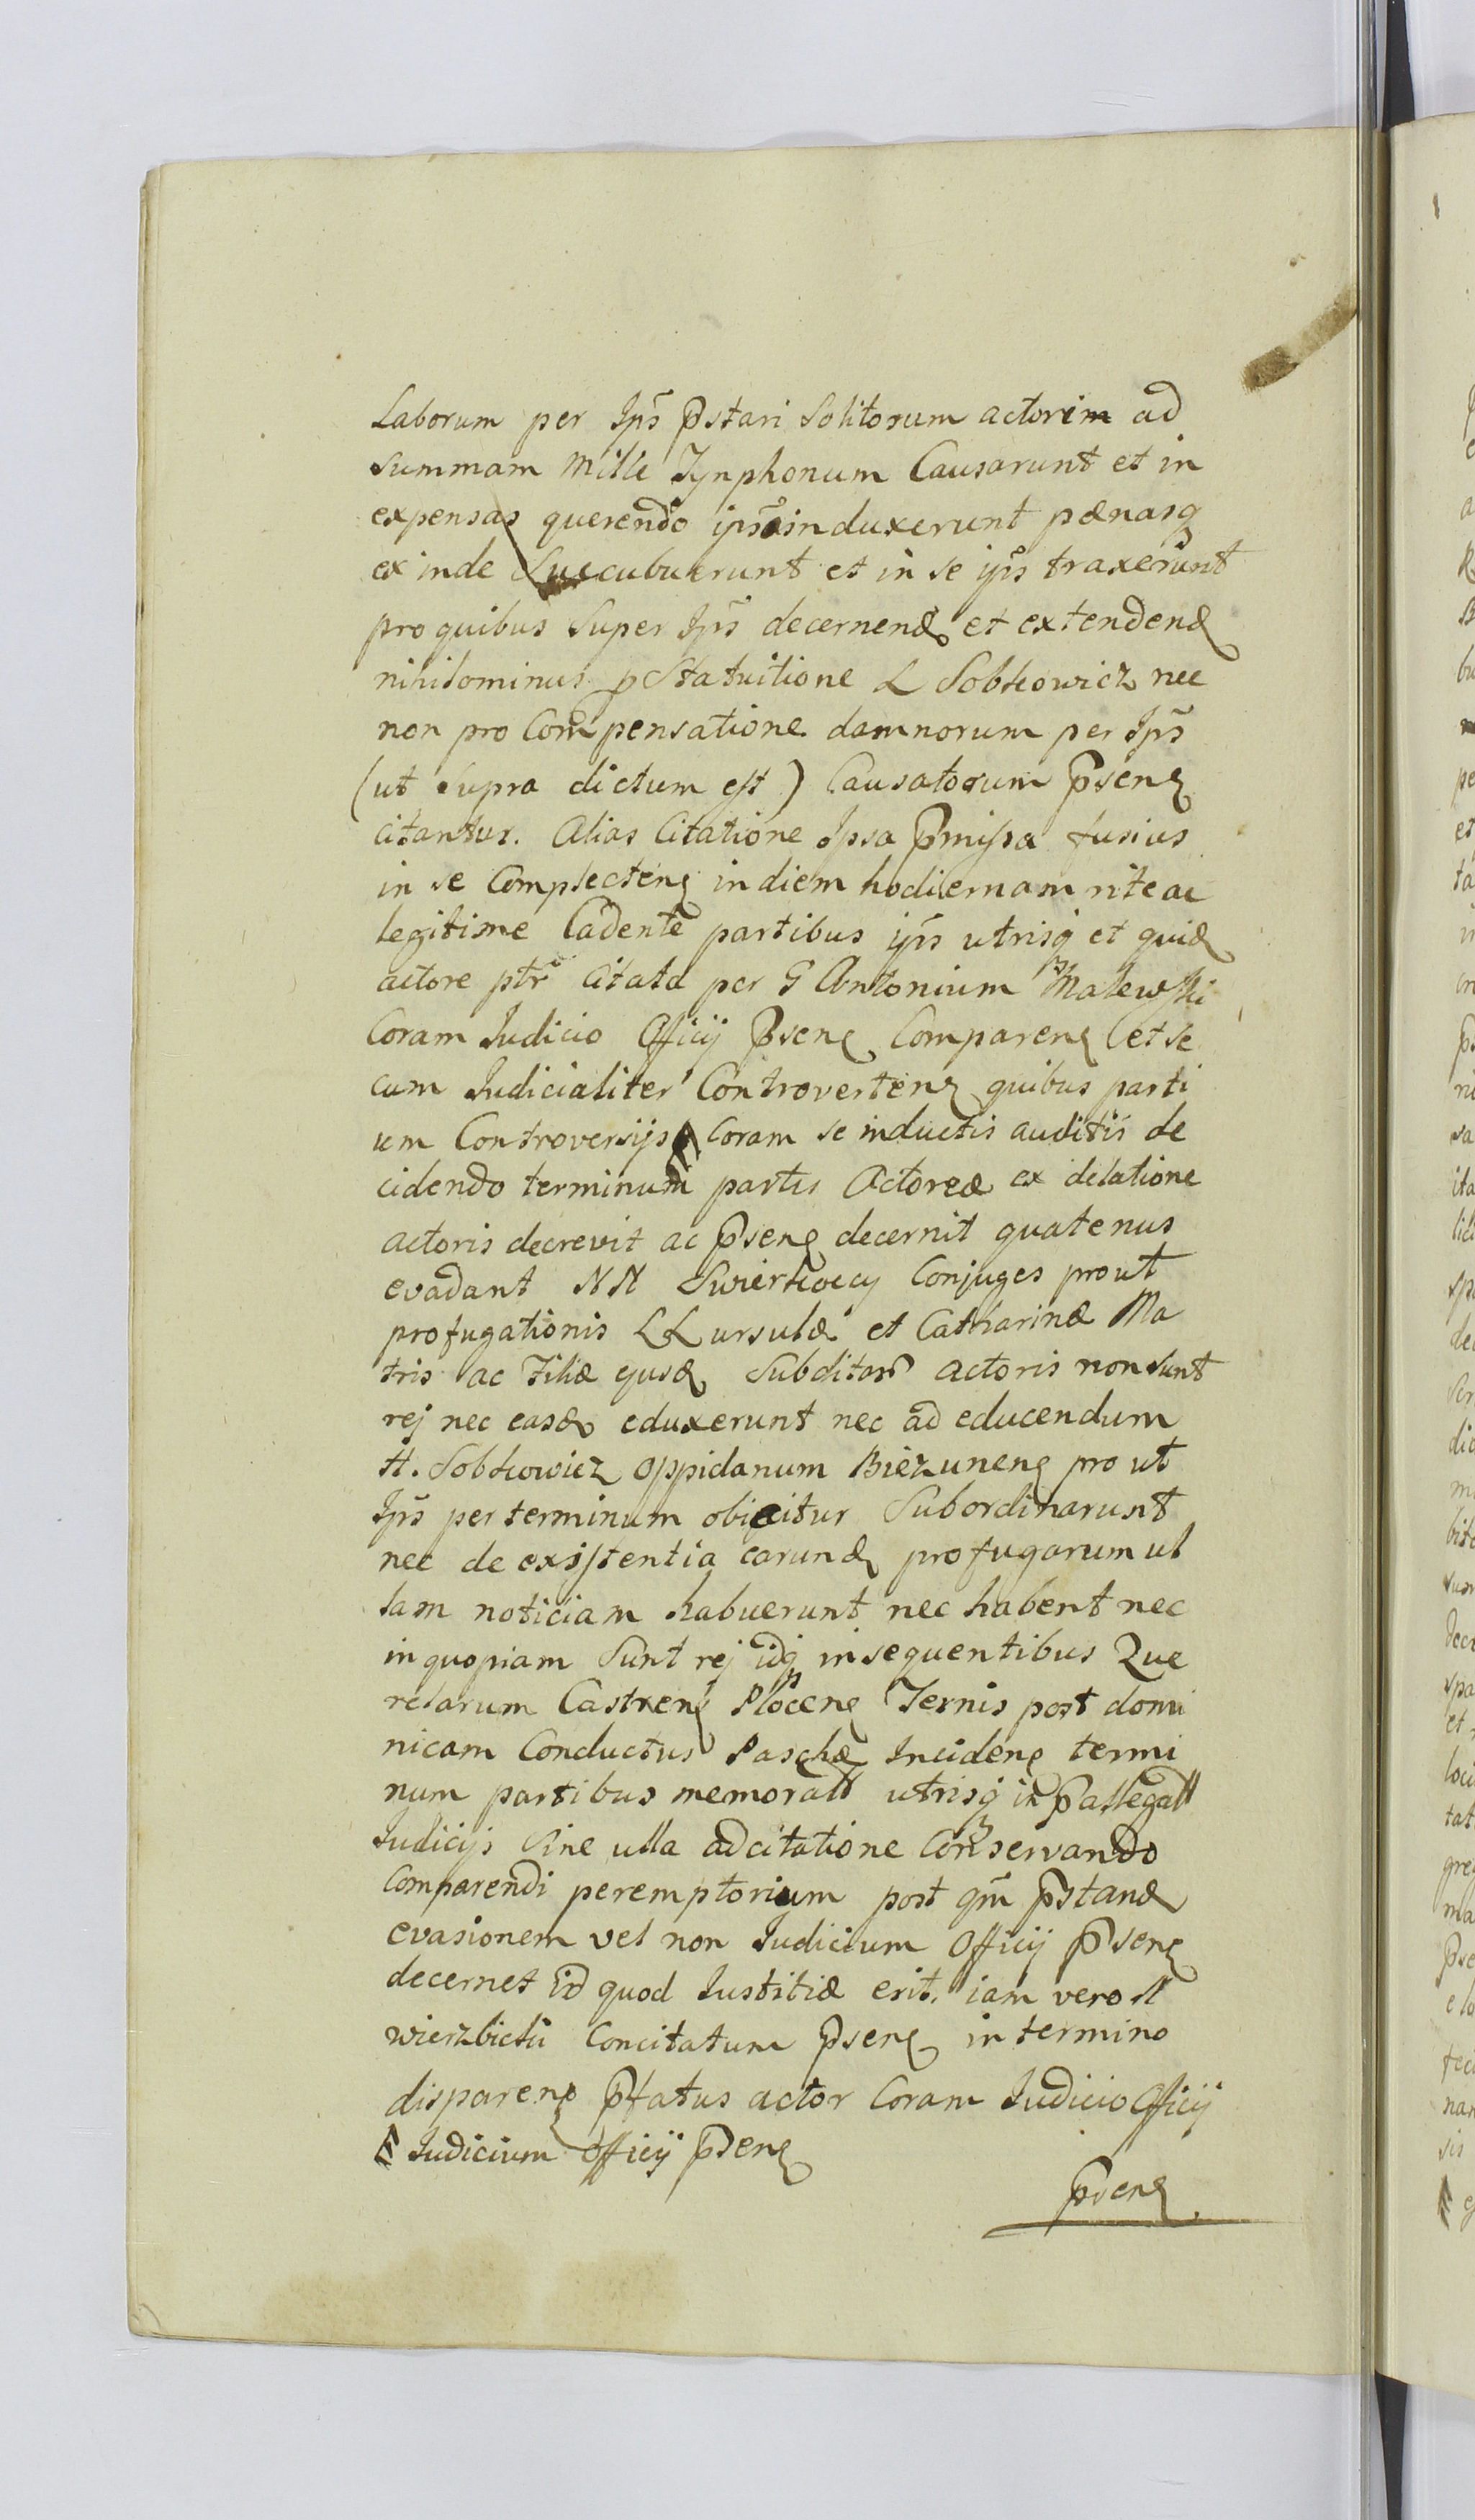 Laborum per Ip̃s p̃stari Solitorum actorem ad
summam mille Tynphonum Causarunt et in
expensas querendo ip̃s induxerunt pœnasq
ex inde Succubuerunt et in se ip̃s traxerunt
pro quibus Super Ip̃s decernend et extendend
nihilominus p Statuitione L Sobkowicz nec
non pro Compensatione damnorum per Ip̃s
(ut supra dictum est) Causatorum p̃sens
citantur. Alias Citatione Ipsa p̃missa fusius
in se Complectens in diem hodiernam rite ac
legitime Cadente partibus ip̃s utrisq et quid
actore citata per G Antonium Malewski
Coram Iudicio Officij p̃sens Comparens et se
cum Iudicialiter Controvertens quibus parti
um Controversijs Coram se inductis auditis de
cidendo terminum partis Actoreæ ex delatione
actoris decrevit ac p̃sens decernit quatenus
evadant NN Swierkoccy Conjuges prout
profugationis LL ursulæ et Catharinæ Ma
tris ac Filiæ ejusd Subditar̃ actoris non sunt
rej nec easd eduxerunt nec ad educendum
H. Sobkowicz oppidanum Bieżunens pro ut
Ip̃s per terminum obijcitur Subordinarunt
nec de existentia earund profugarum ul
lam noticiam habuerunt nec habent nec
in quopiam Sunt rej idq in sequentibus Que
relarum Castrens Plocens Ternis post domi
nicam Conductus Paschæ Incidens termi
num partibus memoratt utrisq in p̃allegatt
Iudicijs Sine ulla adcitatione Conservando
Comparendi peremptorium post qm̃ p̃stand
evasionem vel non Iudicium Officij p̃sens
decernet id quod Iustitiæ erit. iam vero N
wierzbicki Concitatum p̃sens in termino
disparens p̃fatus actor Coram Iudicio Officij
Iudicium officij p̃sens
p̃sens